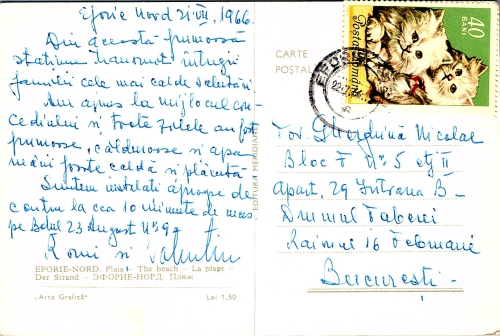 Eforie Nord 21.VII.1966.
Din această frumoasă
stațiune transmit întregii
familii cele mai calde salutări
Am ajuns la mijlocul con-
cediului și toate zilele au fost
frumoase, călduroase și apa
mării foarte caldă și plăcută
Suntem instalați aproape de
centru la cca 10 minute de mers
pe Bdul 23 August Nº 99
Romi și Valentin
EFORIE-NORD. Plaja — The beach — La plage —
Der Strand — ЭФОРИЕ-НОРД. Пляж
„Arta Grafică"
Lei 1,50
EDITURA MERIDIANE
CARTE
POSTALĂ
40
BANI
Posta Romana
EFORIE
Tov. Gherghina Nicolae
Bloc F Nº 5 etj II
Apart. 29 Intrarea B-
Drumul Taberei
Raionul 16 Februarie
București-